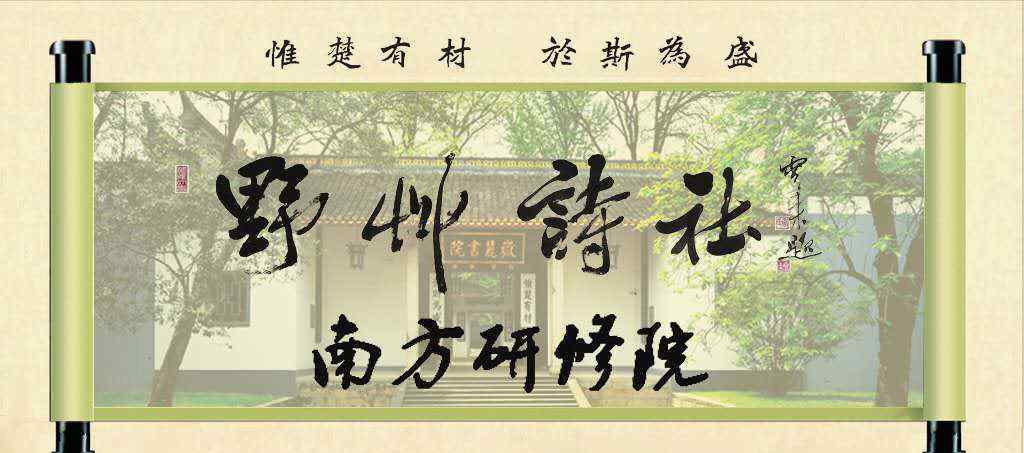 惟楚有材 於斯為盛
野艸詩社
南方研修院
嶽麓書院
惟楚有材